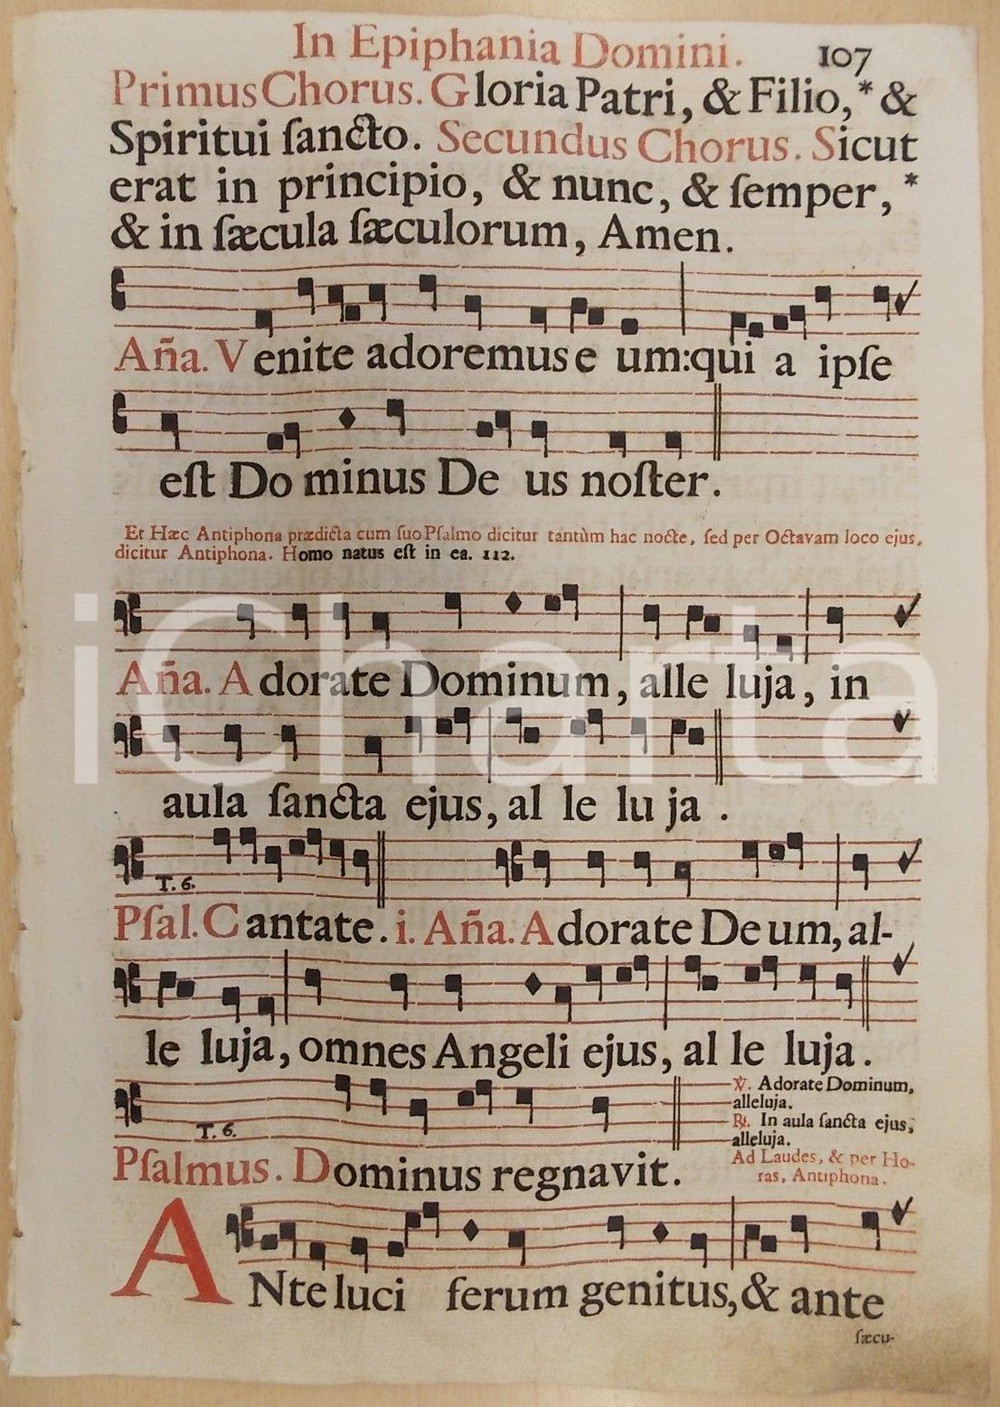 In Epiphania Domini. 107
Primus Chorus. Gloria Patri, & Filio,* &
Spiritui ſancto. Secundus Chorus. Sicut
erat in principio, & nunc, & ſemper, *
& in ſæcula ſæculorum, Amen.
Aña. Venite adoremus e um: qui a ipſe
eſt Do minus De us noſter.
Et Hæc Antiphona prædicta cum ſuo Pſalmo dicitur tantùm hac nocte, ſed per Octavam loco ejus,
dicitur Antiphona. Homo natus eſt in ea. 112.
Aña. Adorate Dominum, alle luja, in
aula ſancta ejus, al le lu ja .
T. 6.
Pſal. Cantate. i. Aña. Adorate De um, al-
le luja, omnes Angeli ejus, al le luja.
T. 6.
Pſalmus. Dominus regnavit.
℣. Adorate Dominum,
alleluja.
℟. In aula ſancta ejus,
alleluja.
Ad Laudes, & per Ho-
ras, Antiphona.
ANte luci ferum genitus, & ante
ſæcu-
iCharta